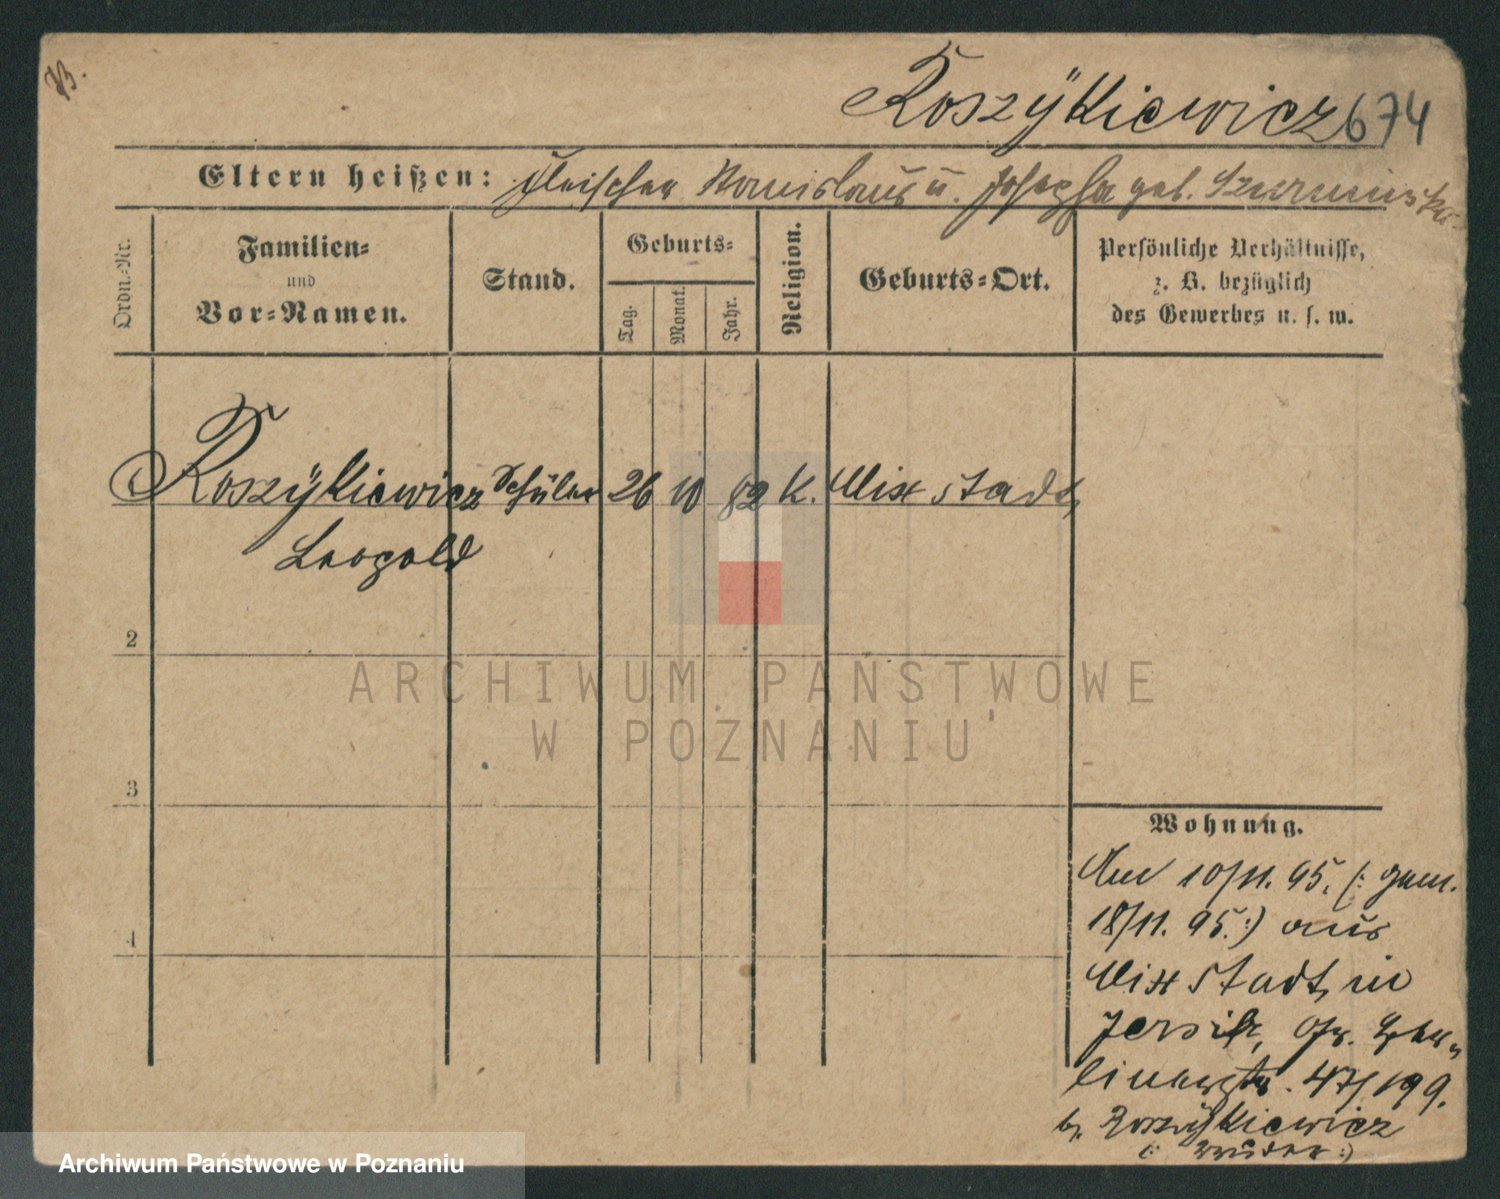 Roszÿkiewicz 674
Eltern heißen: Fleischer Stanislaus u. Josepha geb. Szurminska
Ordn.-Nr.
Familien-
und
Vor-Namen.
Stand.
Geburts-
Tag.
Monat.
Jahr.
Religion.
Geburts-Ort.
Persönliche Verhältnisse,
z. B. bezüglich
des Gewerbes u. s. w.
Roszÿkiewicz Schüler 26 10 82 K. Mixstadt
Leopold
2
3
4
Wohnung.
Am 10/11. 95. (: gem.
18/11. 95. :) aus
Mixstadt, in
Jersitz, Gr. Ber-
linerstr. 47/199.
b. Roszÿkiewicz
(: Bruder :)
ARCHIWUM PAŃSTWOWE
W POZNANIU
Archiwum Państwowe w Poznaniu